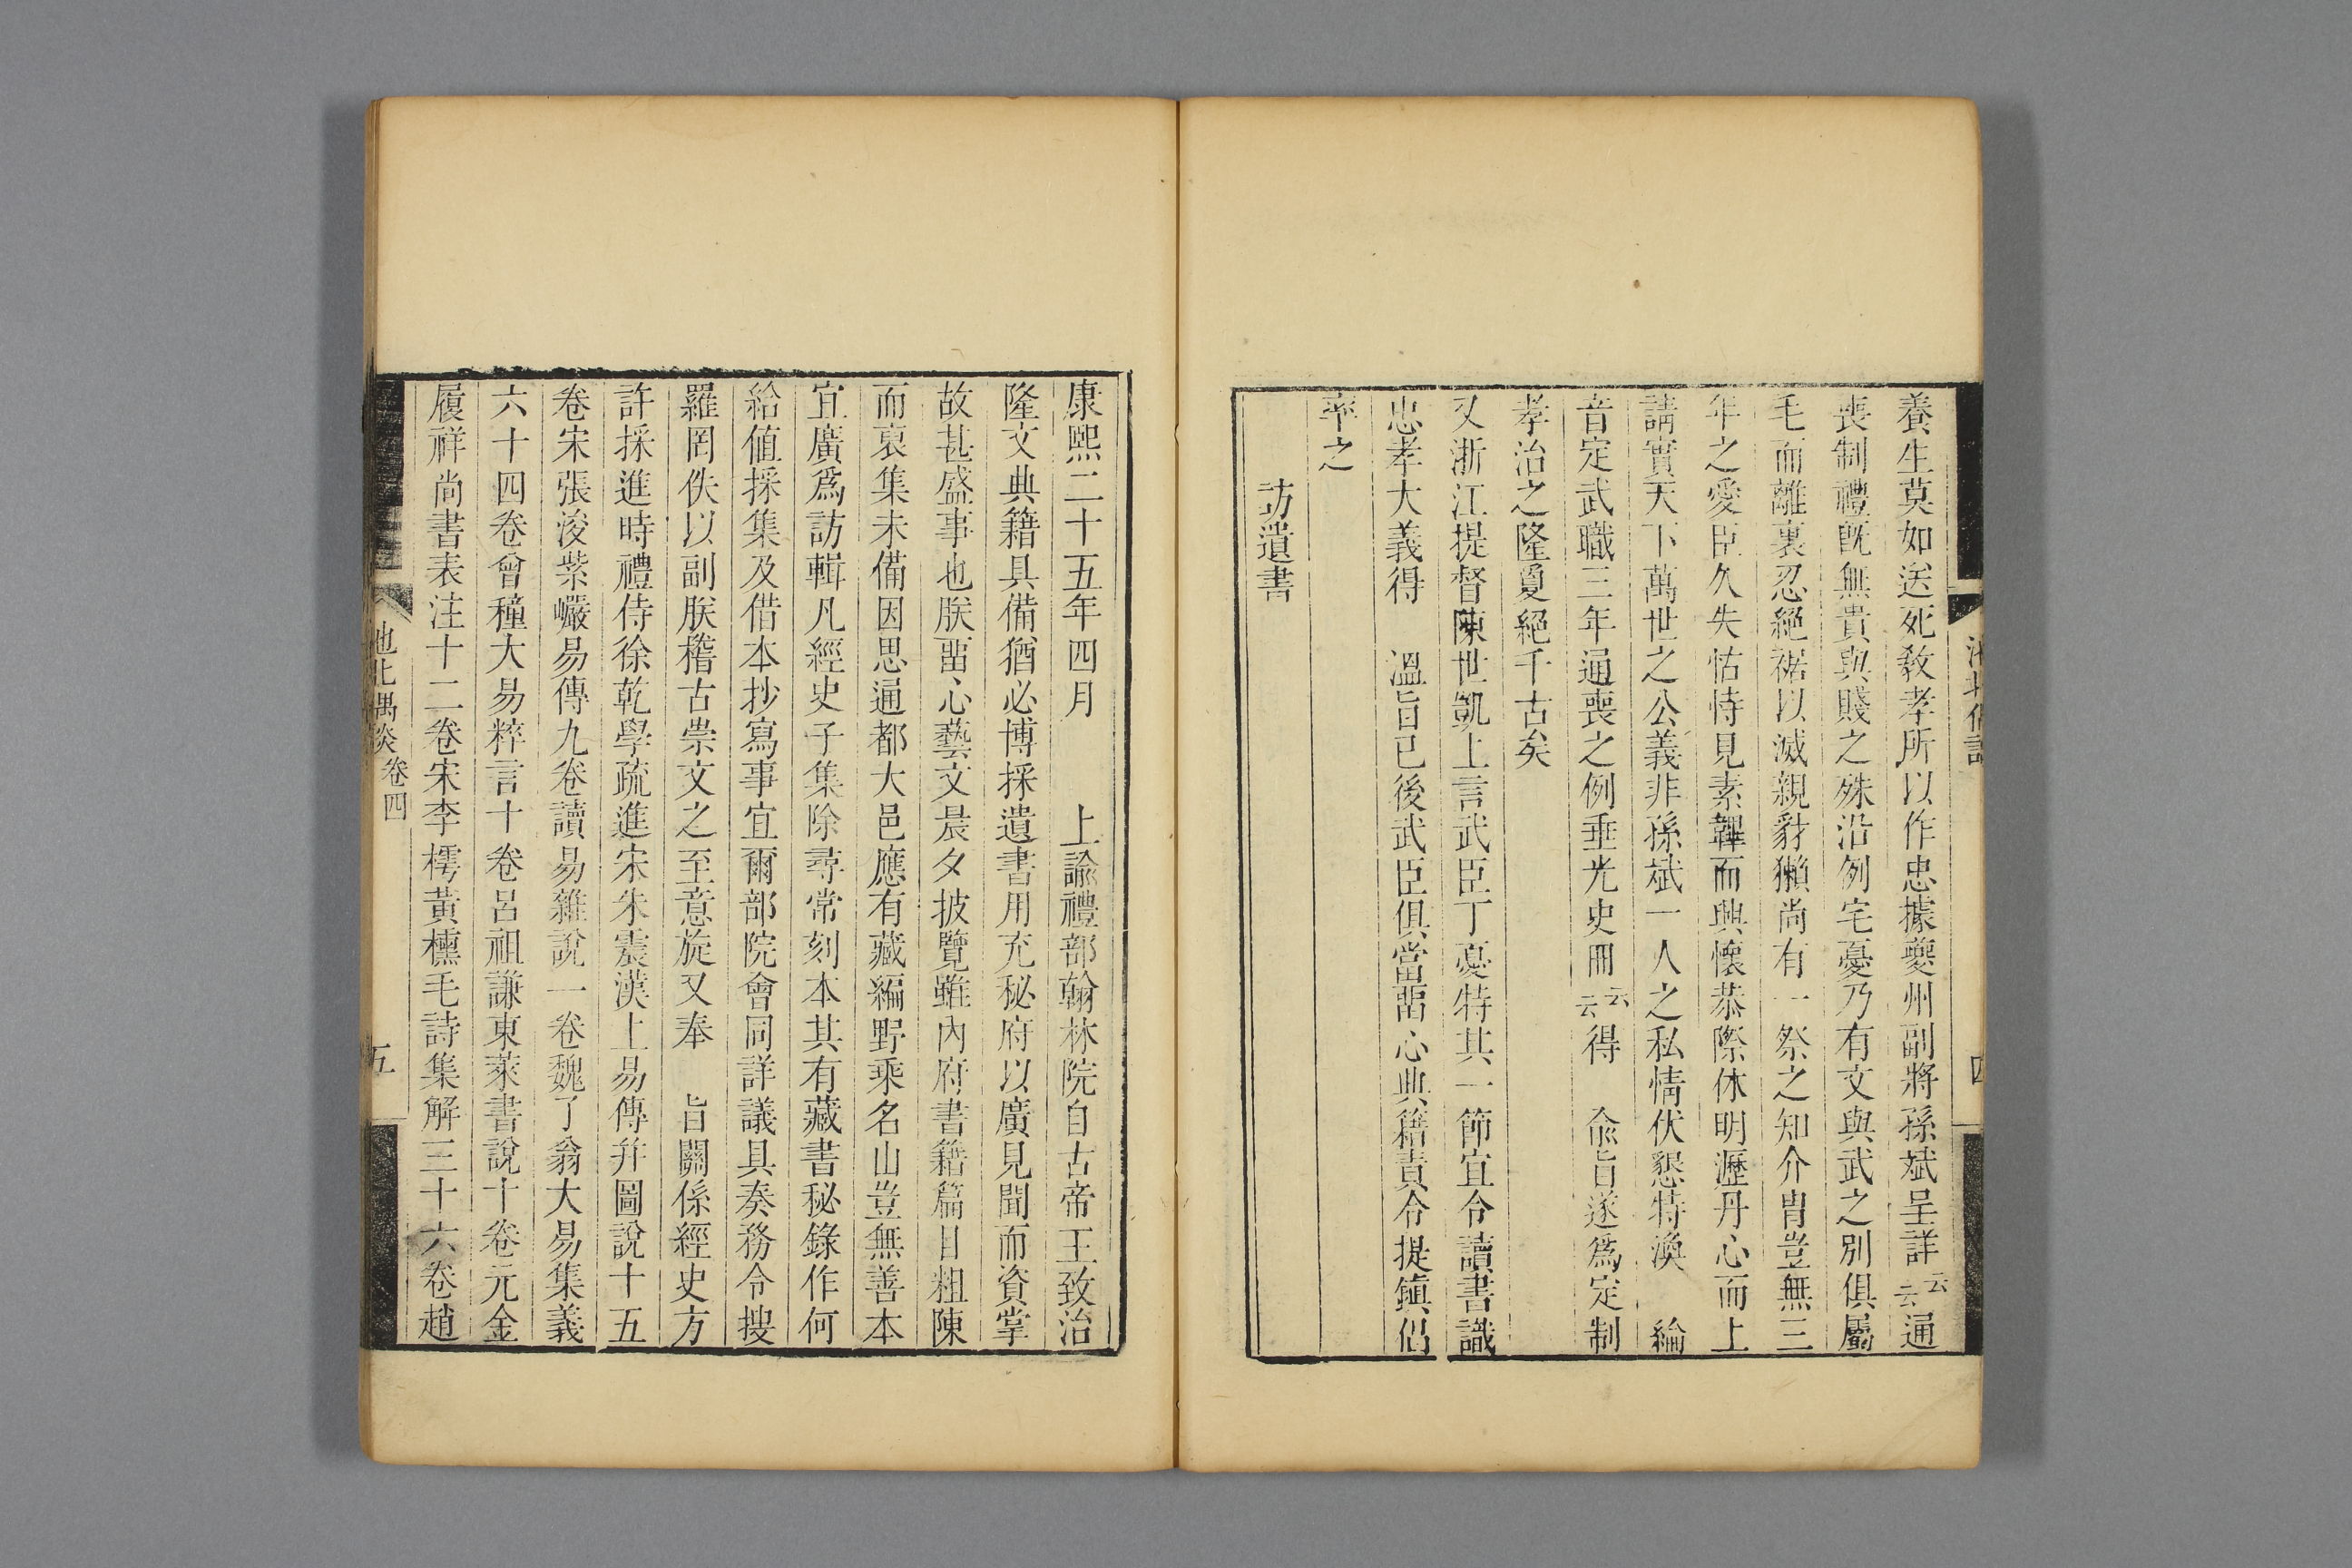 養生莫如送死敎孝所以作忠據夔州副將孫斌呈詳云云通
喪制禮旣無貴與賤之殊沿例宅憂乃有文與武之別俱屬
毛而離裏忍絕裾以滅親豺獺尚有一祭之知介胄豈無三
年之愛臣久失怙恃見素韠而興懷恭際休明瀝丹心而上
請實天下萬世之公義非孫斌一人之私情伏懇特渙 綸
音定武職三年通喪之例垂光史冊云云得 兪旨遂爲定制
孝治之隆敻絕千古矣
又浙江提督陳世凱上言武臣丁憂特其一節宜令讀書識
忠孝大義得 溫旨已後武臣俱當畱心典籍責令提鎭侣
率之
訪遺書
康熙二十五年四月 上諭禮部翰林院自古帝王致治
隆文典籍具備猶必博採遺書用充秘府以廣見聞而資掌
故甚盛事也朕畱心藝文晨夕披覽雖內府書籍篇目粗陳
而裒集未備因思通都大邑應有藏編野乘名山豈無善本
宜廣爲訪輯凡經史子集除尋常刻本其有藏書秘錄作何
給値採集及借本抄寫事宜爾部院會同詳議具奏務令搜
羅罔佚以副朕稽古崇文之至意旋又奉 旨關係經史方
許採進時禮侍徐乾學疏進宋朱震漢上易傳幷圖說十五
卷宋張浚紫巖易傳九卷讀易雜說一卷魏了翁大易集義
六十四卷曾穜大易粹言十卷呂祖謙東萊書說十卷元金
履祥尚書表注十二卷宋李樗黃櫄毛詩集解三十六卷趙
池北偶談 卷四 五